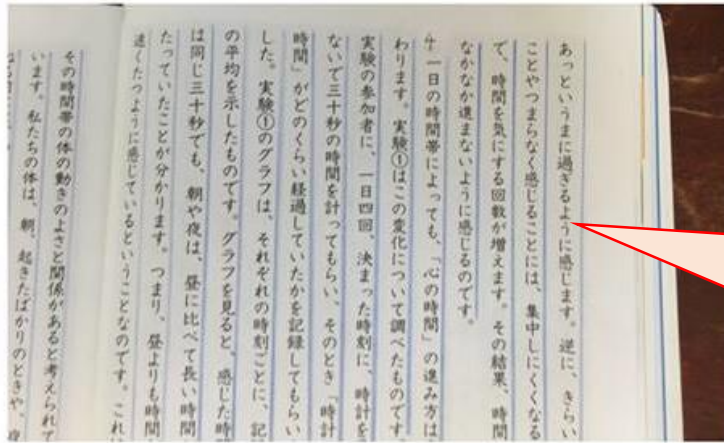 あっというまに過ぎるように感じます。逆に、きらい
ことやつまらなく感じることには、集中しにくくなる
で、時間を気にする回数が増えます。その結果、時間
なかなか進まないように感じるのです。
4 一日の時間帯によっても、「心の時間」の進み方は
わります。実験①はこの変化について調べたものです。
実験の参加者に、一日四回、決まった時刻に、時計を
ないで三十秒の時間を計ってもらい、そのとき「時計
時間」がどのくらい経過していたかを記録してもらい
した。実験①のグラフは、それぞれの時刻ごとに、記
の平均を示したものです。グラフを見ると、感じた時
は同じ三十秒でも、朝や夜は、昼に比べて長い時間
たっていたことが分かります。つまり、昼よりも時間
速くたつように感じているということなのです。これ
その時間帯の体の動きのよさと関係があると考えられて
います。私たちの体は、朝、起きたばかりのときや、夜